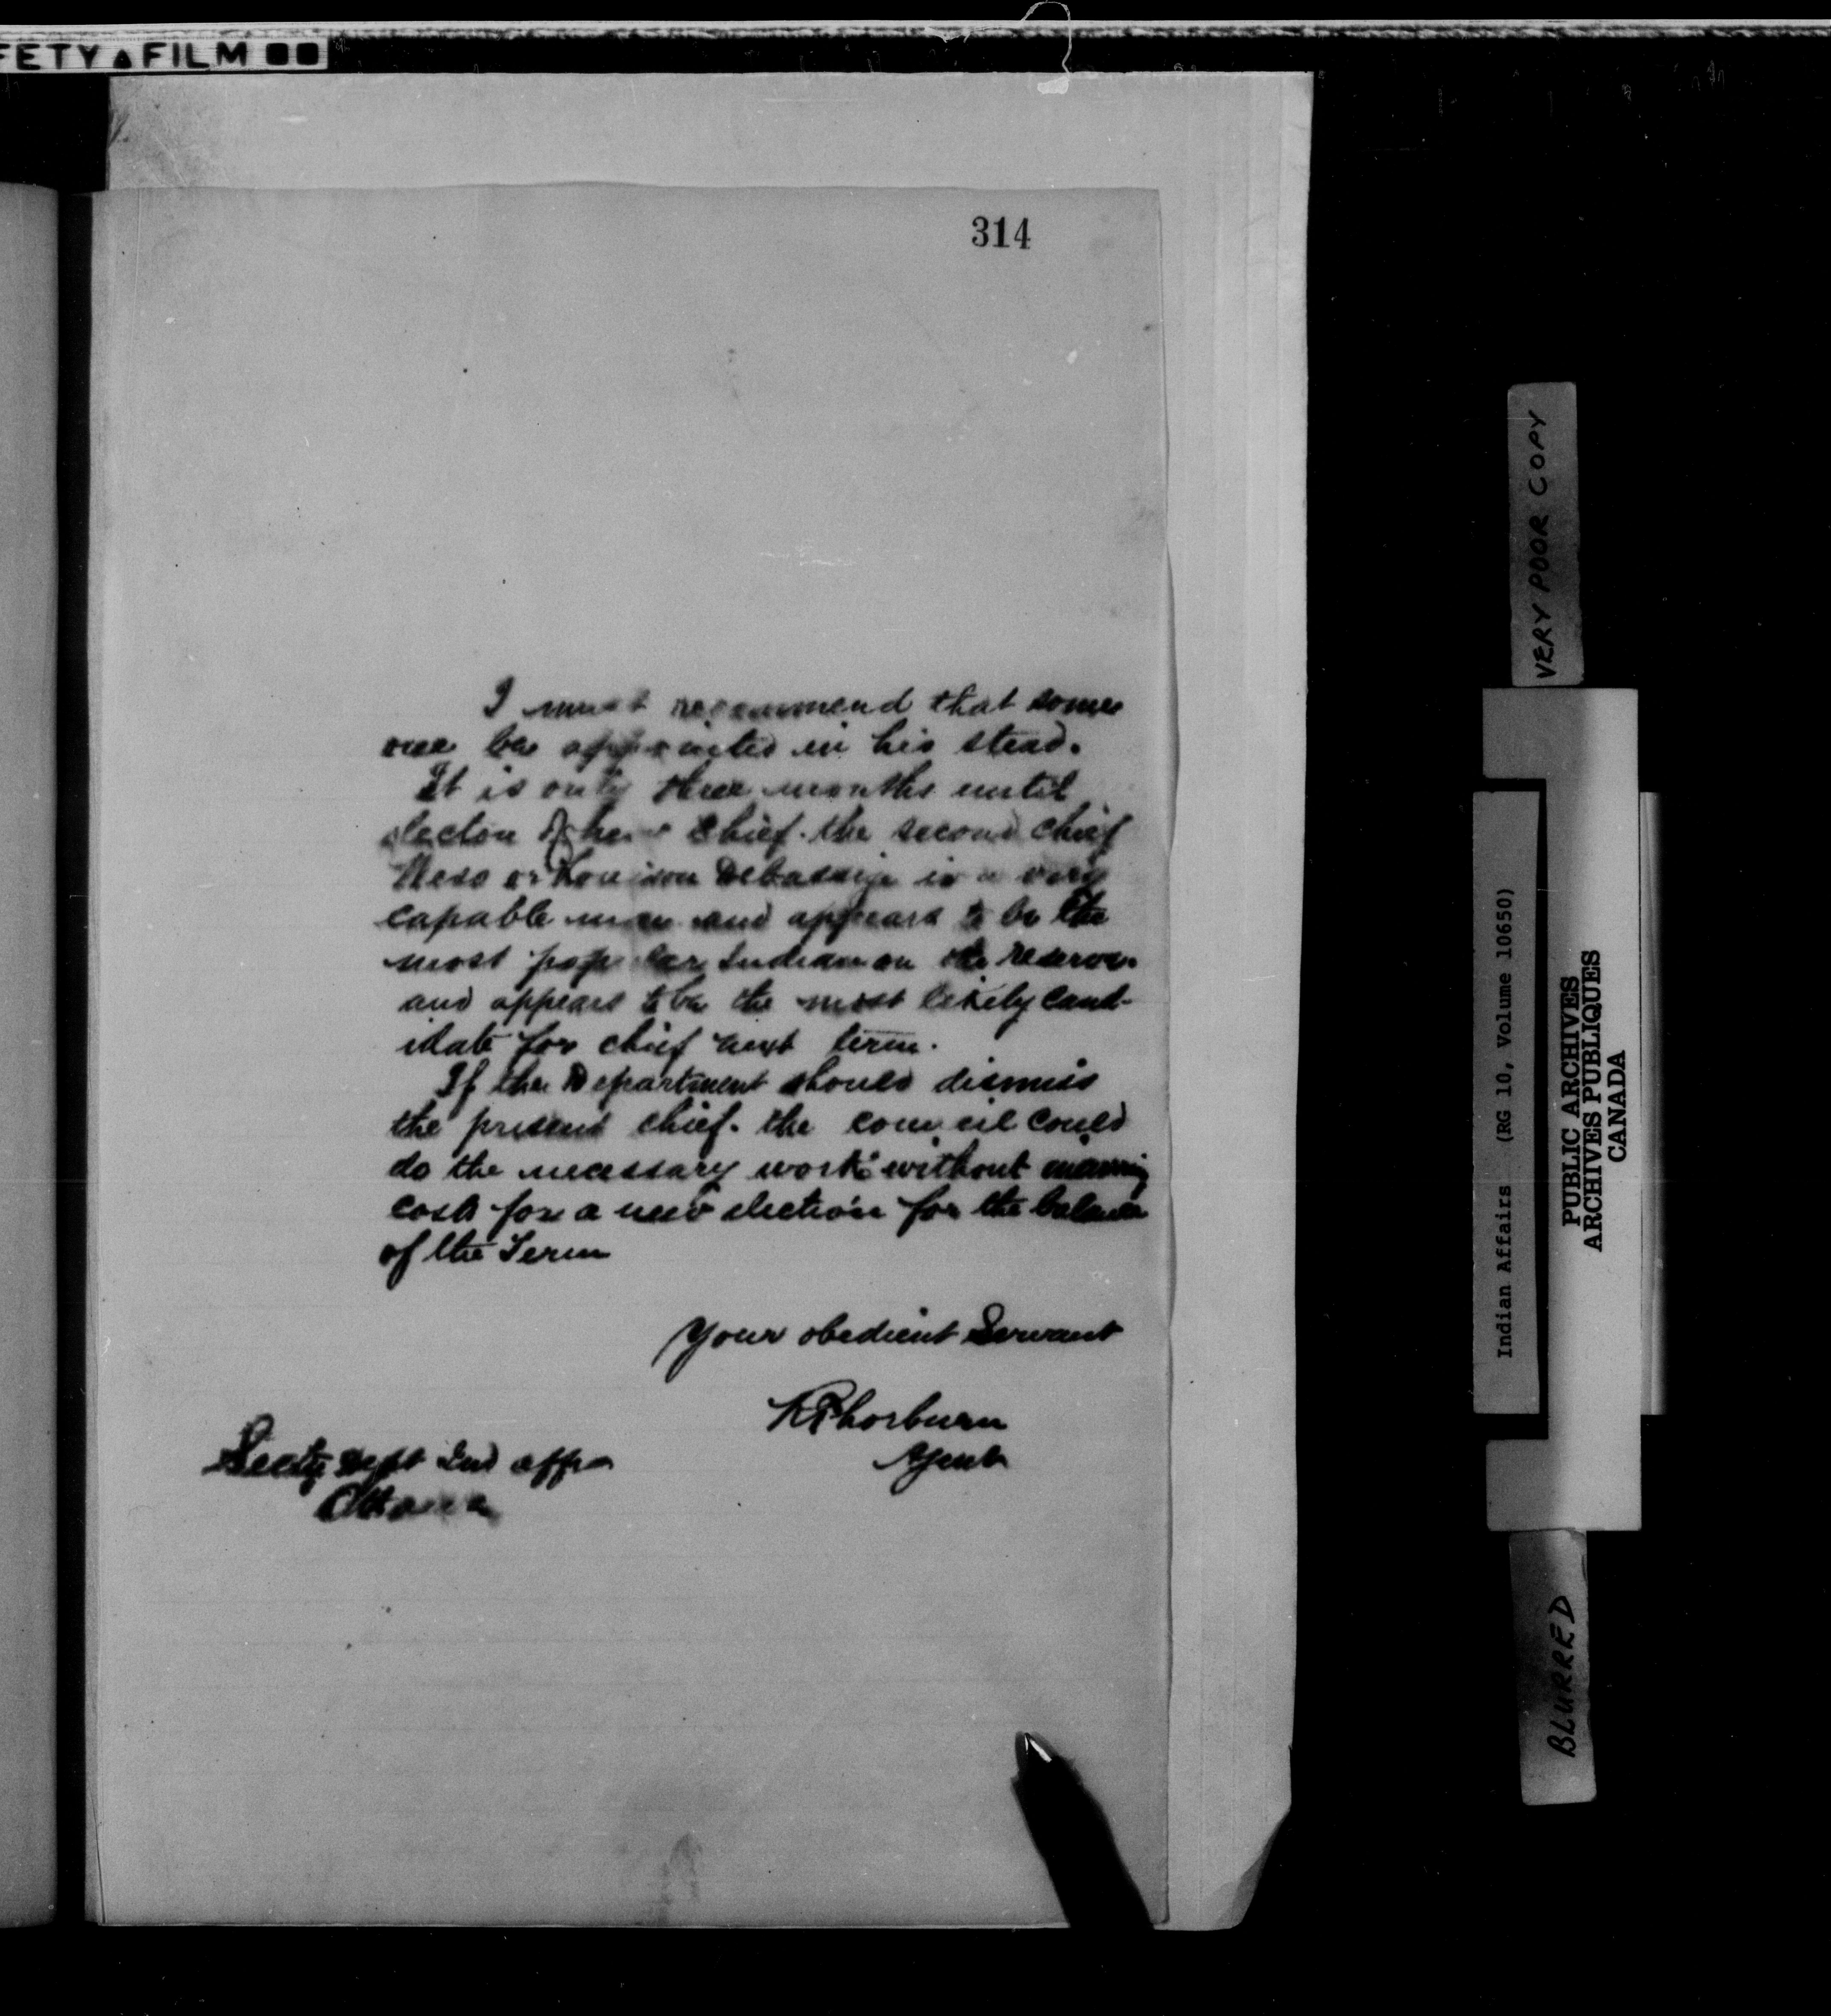 FETY FILM
314
I must recommend that some
one be appointed in his stead.
It is only three months until
electon of new Chief. the second chief
or Debassige is a very
capable man and appears to be the
most popular Indian on the reserve.
and appears to be the most likely cand-
idate for chief next term.
If the Department should dismiss
the present chief. the council could
do the necessary work without
cost for a new election for the balance
of the Term
Your obedient Servant
R Thorburn
Agent
Secty Dept Ind affrs
Ottawa
VERY POOR COPY
Indian Affairs (RG 10, Volume 10650)
PUBLIC ARCHIVES
ARCHIVES PUBLIQUES
CANADA
BLURRED